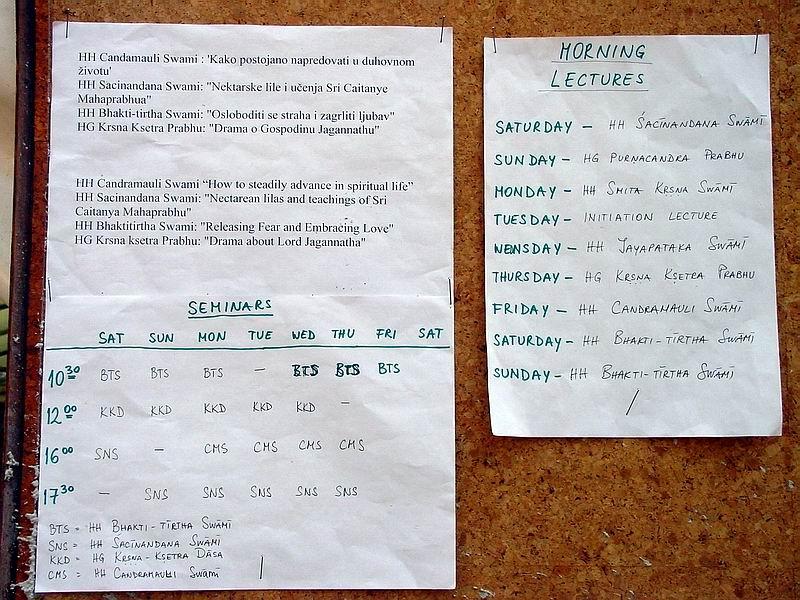 HH Candamauli Swami : 'Kako postojano napredovati u duhovnom
životu'
HH Sacinandana Swami: "Nektarske lile i učenja Sri Caitanye
Mahaprabhua"
HH Bhakti-tirtha Swami: "Osloboditi se straha i zagrliti ljubav"
HG Krsna Ksetra Prabhu: "Drama o Gospodinu Jagannathu"
HH Candramauli Swami “How to steadily advance in spiritual life”
HH Sacinandana Swami: "Nectarean lilas and teachings of Sri
Caitanya Mahaprabhu"
HH Bhaktitirtha Swami: "Releasing Fear and Embracing Love"
HG Krsna ksetra Prabhu: "Drama about Lord Jagannatha"
SEMINARS
SAT SUN MON TUE WED THU FRI SAT
10 30 BTS BTS BTS – BTS BTS BTS
12 00 KKD KKD KKD KKD KKD –
16 00 SNS – CMS CMS CMS CMS
17 30 – SNS SNS SNS SNS SNS
BTS = HH BHAKTI-TĪRTHA SWĀMĪ
SNS = HH SACĪNANDANA SWĀMĪ
KKD = HG KRSNA-KSETRA DĀSA
CMS = HH CANDRAMAULI SWĀMĪ
MORNING
LECTURES
SATURDAY – HH ŚACĪNANDANA SWĀMĪ
SUNDAY – HG PURNACANDRA PRABHU
MONDAY – HH SMITA KRSNA SWĀMĪ
TUESDAY – INITIATION LECTURE
WENSDAY – HH JAYAPATAKA SWĀMĪ
THURSDAY – HG KRṢNA KṢETRA PRABHU
FRIDAY – HH CANDRAMAULI SWĀMĪ
SATURDAY – HH BHAKTI-TĪRTHA SWĀMĪ
SUNDAY – HH BHAKTI-TĪRTHA SWĀMĪ